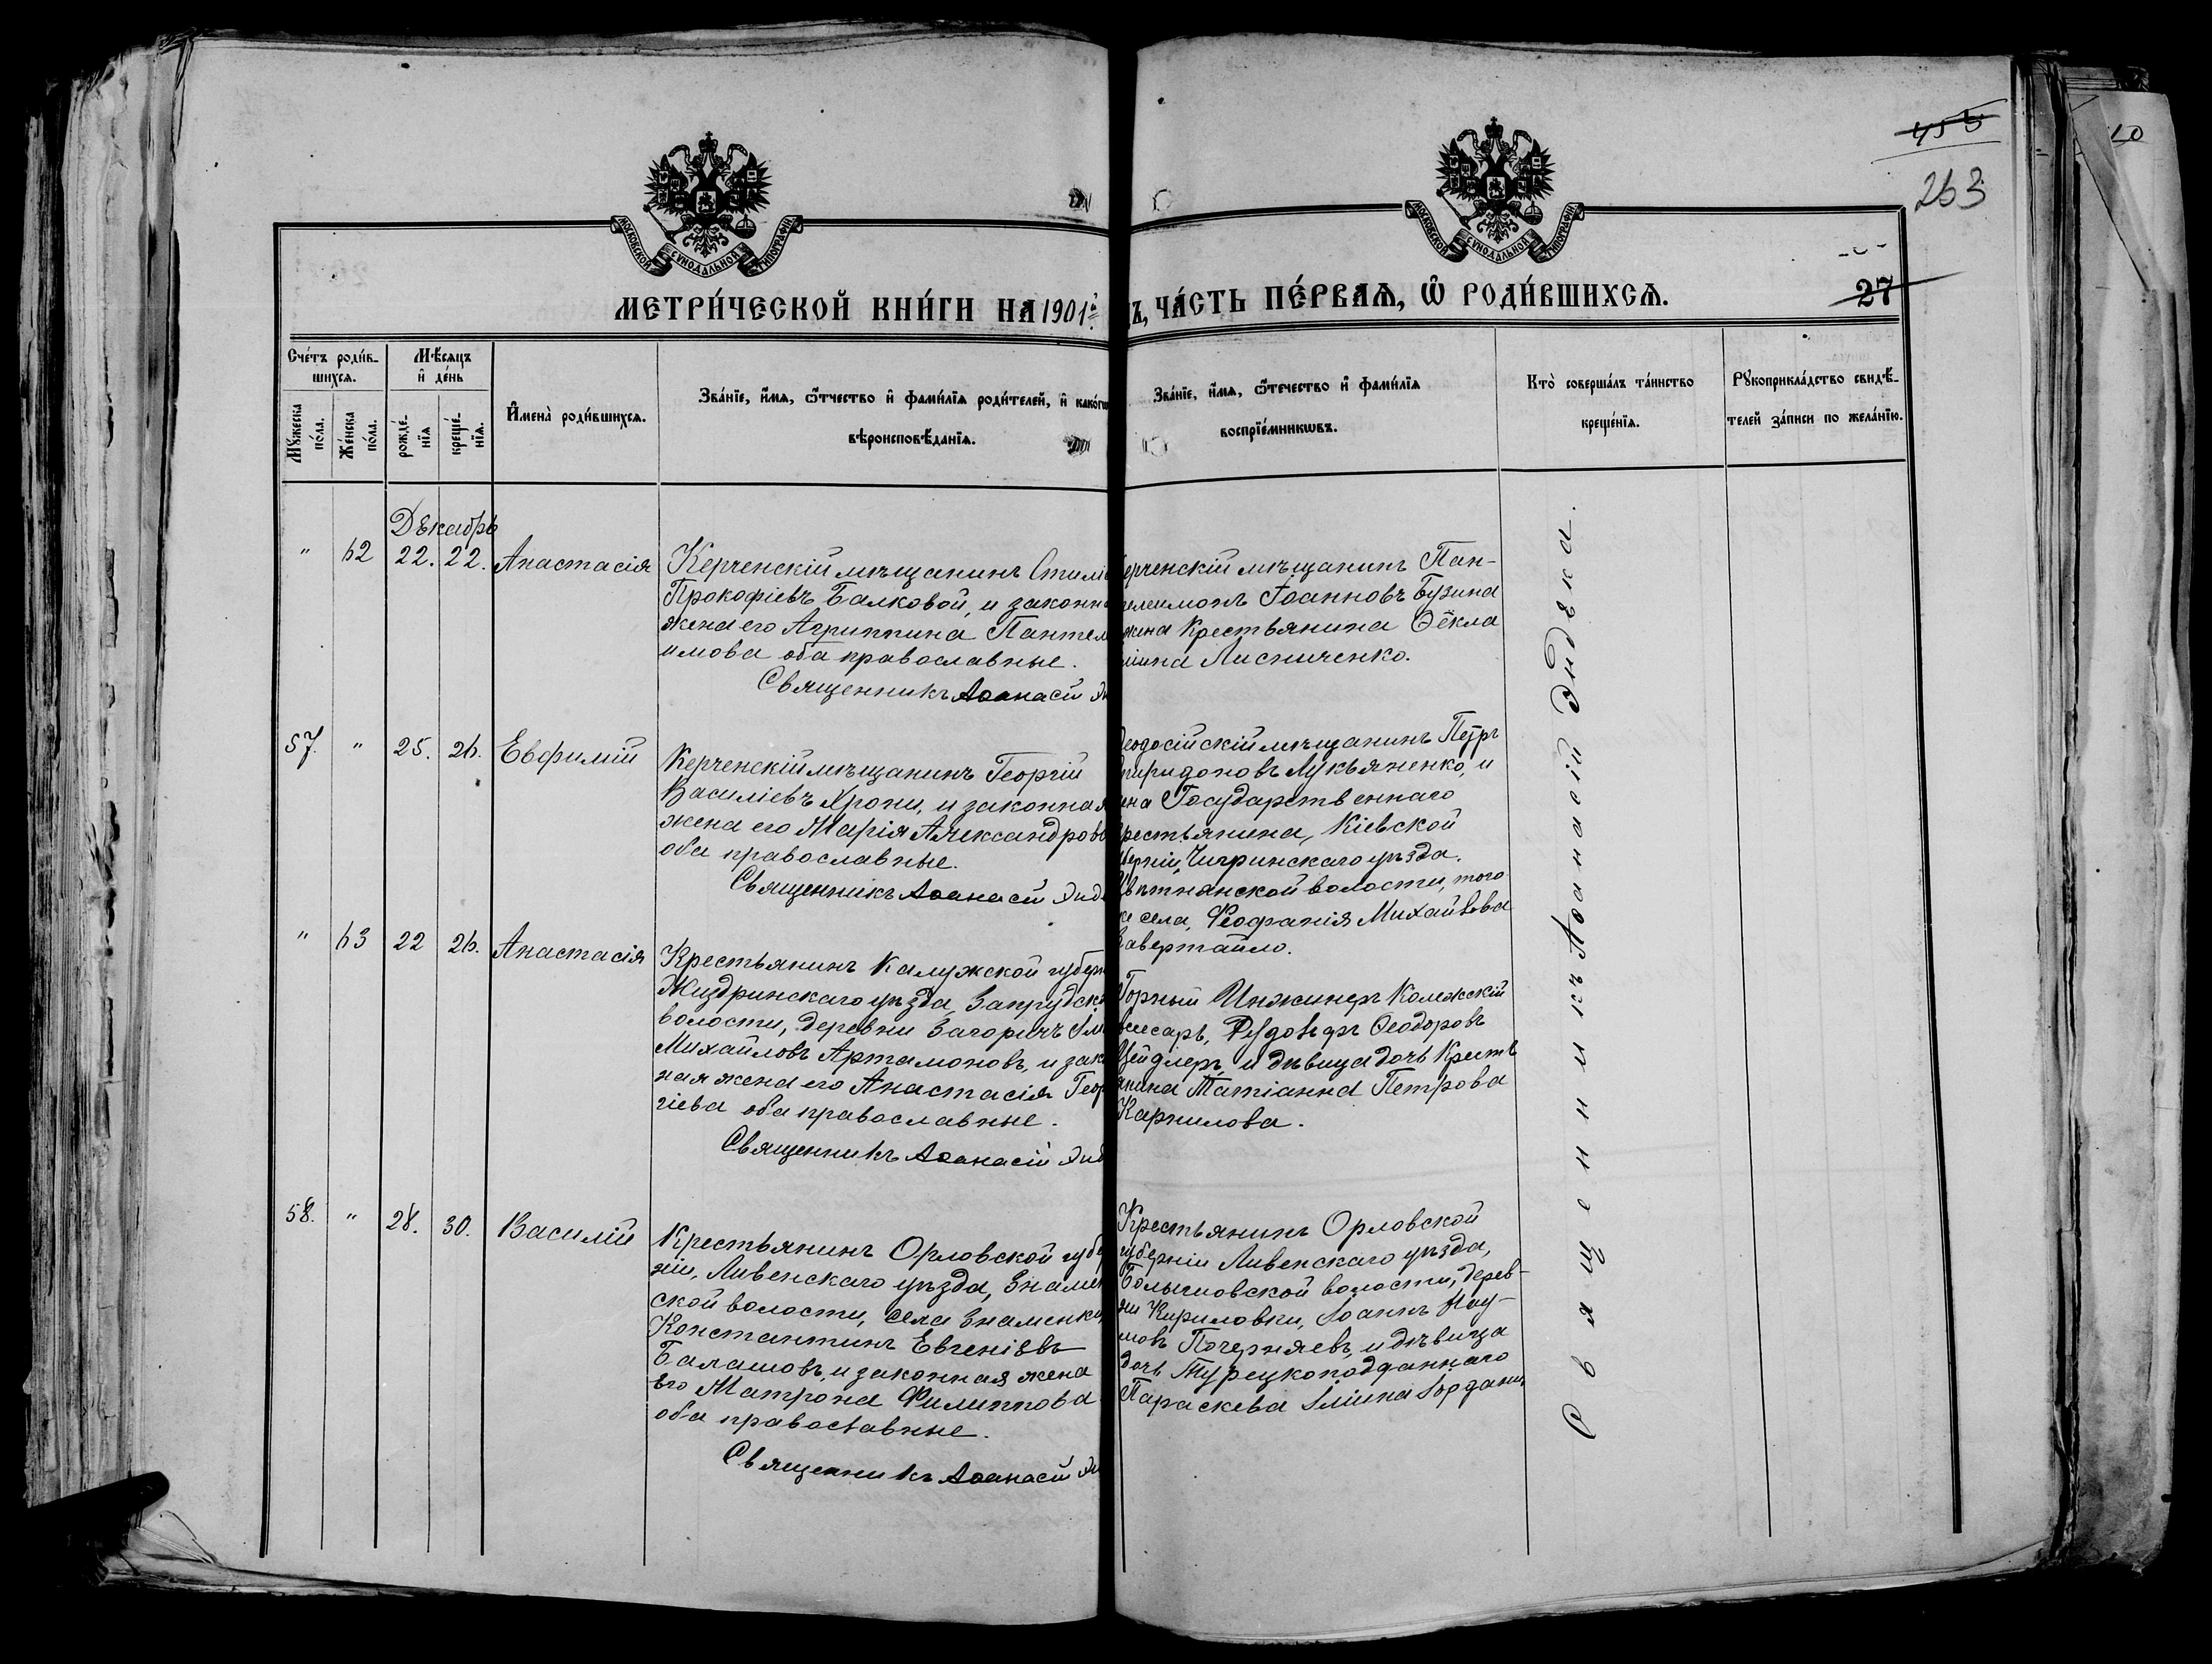 455
263
10
МОСКОВСКОЙ СУНОДАЛЬНОЙ ТИПОГРАФІИ
МОСКОВСКОЙ СУНОДАЛЬНОЙ ТИПОГРАФІИ
МЕТРИ́ЧЕСКОЙ КНИ́ГИ НА 1901
Ъ, ЧА́СТЬ ПЕ́РВАЯ, Ѡ҆ РОДИ́ВШИХСЯ.
27
Сче́тъ роди́в-
шихся.
Мѣ́сяцъ
и҆ де́нь
Мꙋ́жеска
по́ла.
Же́нска
по́ла.
рожде́-
нїя
креще́-
нїя.
И҆мена̀ роди́вшихся.
Зва́нїе, и҆́мя, ѻ҆́тчество и҆ фами́лїя роди́телей, и҆ како́гѡ
вѣроисповѣ́данїя.
Зва́нїе, и҆́мя, ѻ҆́течество и҆ фами́лїя
воспрїе́мникѡвъ.
Кто̀ соверша́лъ та́инство
креще́нїя.
Рꙋкоприкла́дство свидѣ́-
телей за́писи по жела́нїю.
Декабрь
" 62 22. 22. Анастасія
Керченскій мѣщанинъ Стилі
Прокофіевъ Балковой, и законн
жена его Агриппина Пантел
имова оба православные.
Священникъ Аѳанасій Эн
ерченскій мѣщанинъ Пан-
телеимонъ Іоанновъ Бузина
жена Крестьянина Ѳёкла
иина Лисниченко.
57. " 25. 26. Евфимій
Керченскій мѣщанинъ Георгій
Василіевъ Хрони, и законная
жена его Марія Александров
оба православные.
Священникъ Аѳанасій Энд
еодосійскій мѣщанинъ Петръ
Спиридоновъ Лукьяненко, и
ена Государственнаго
рестьянина, Кіевской
уберніи, Чигринскаго уѣзда,
Цвѣтнянской волости, того
же села, Феофанія Михайлова
Завертайло.
" 63 22 26. Анастасія
Крестьянинъ Калужской губерн
Жиздринскаго уѣзда, Запрудск
волости, деревни Загоричъ Ѳм
Михайловъ Артамоновъ, и зак
ная жена его Анастасія Геор
гіева оба православные.
Священникъ Аѳанасій Энд
Горный Инжинеръ Колежскій
Рудольфъ Ѳеодоровъ
Цейдлеръ, и дѣвица дочь Кресть
янина Татіанна Петрова
Карпилова.
58. " 28. 30. Василій
Крестьянинъ Орловской губе
ніи, Ливенскаго уѣзда, Знамен
ской волости, села Знаменки
Константинъ Евгеніевъ
Балашовъ, и законная жена
его Матрона Филиппова
оба православные.
Священникъ Аѳанасій Эн
Крестьянинъ Орловской
губерніи Ливенскаго уѣзда,
волости, дерев-
ни Кириловки, Іоаннъ Нау-
мовъ Почерняевъ, и дѣвица
дочь Турецкоподданнаго
Параскева Іліина Іордани
Священникъ Аѳанасій Эндека.